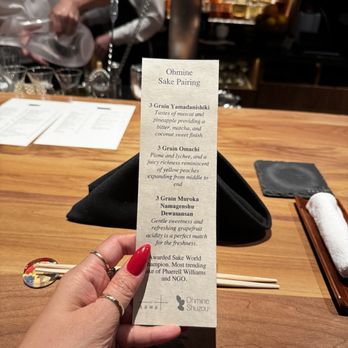 Ohmine
Sake Pairing
3 Grain Yamadanishiki
Tastes of muscat and
pineapple providing a
bitter, matcha, and
coconut sweet finish
3 Grain Omachi
Plume and lychee, and a
juicy richness reminiscent
of yellow peaches
expanding from middle to
end
3 Grain Muroka
Namagenshu
Dewasansan
Gentle sweetness and
refreshing grapefruit
acidity is a perfect match
for the freshness.
Awarded Sake World
Champion. Most trending
sake of Pharrell Williams
and NGO.
Ohmine
Shuzou